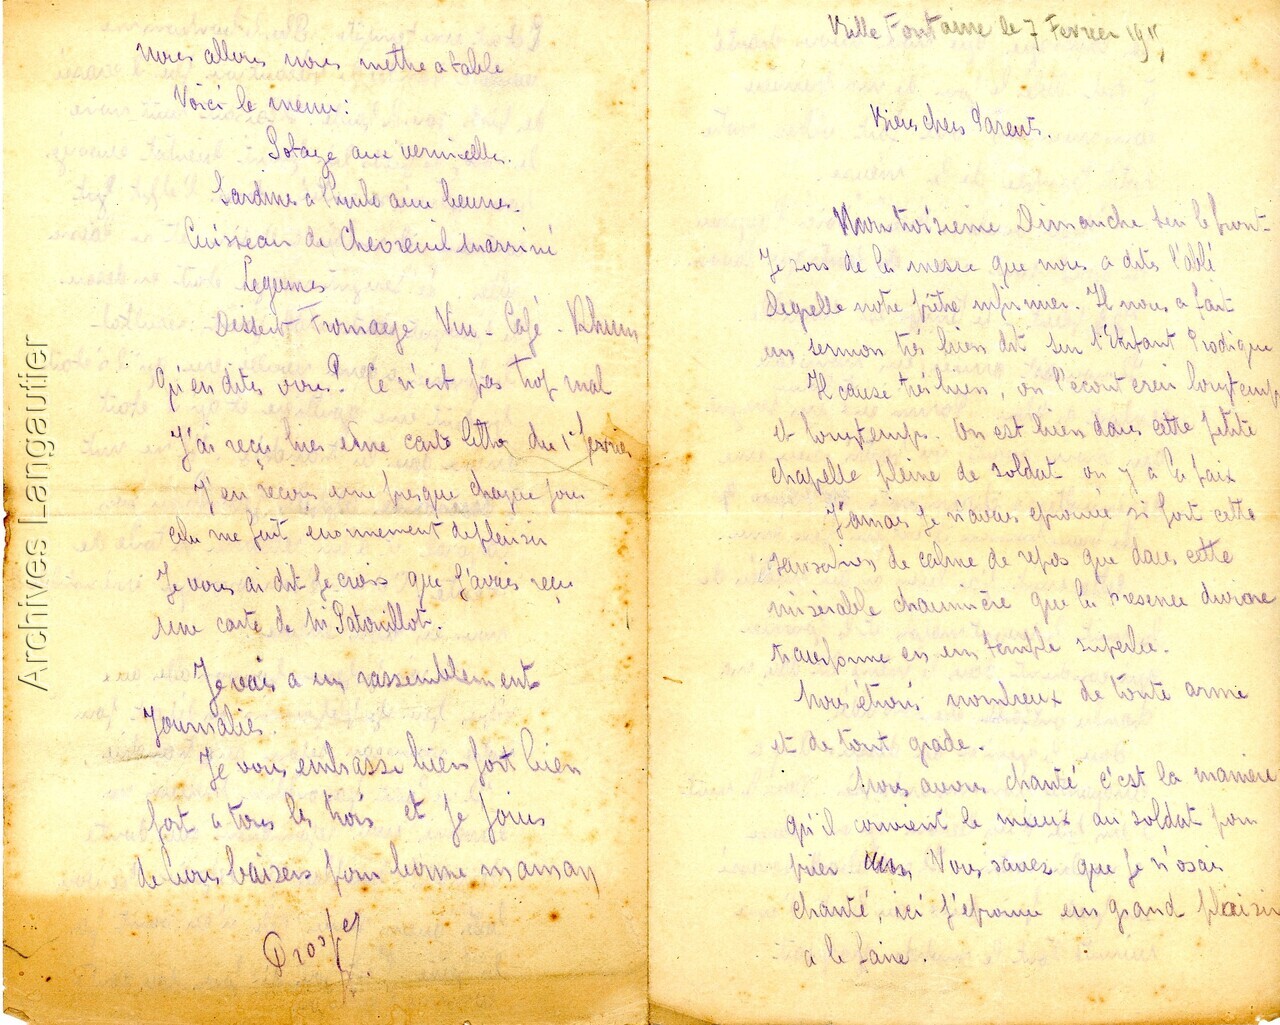 Ville Fontaine le 7 Fevrier 1915
Biens chers Parents.
Mon troisieme Dimanche sur le front.
Je sors de la messe que nous a dites l'abbé
Dequelle notre prêtre infirmier. Il nous a fait
un sermon très bien dit sur l'Enfant Prodique
Il cause très bien, on l'écouterais longtemps
et longtemps. On est bien dans cette petite
chapelle pleine de soldat on y a la paix
J'amais je n'avais eprouvé si fort cette
de calme de repos que dans cette
misérable chaumière que la presence divine
transforme en un temple superbe.
Nous étions nombreux de toute arme
et de tout grade.
Nous avons chanté c'est la manière
qu'il convient le mieux au soldat pour
prier Vous savez que je n'osais
chanté, ici j'éprouve un grand plaisir
a le faire.
Nous allons nous methe a table
Voici le menu:
Potage aux vermicelles.
Sardines a l'huile aux beurre.
Cuisseau de Chevreuil marriné
Legumes
Dessert Fromage Vin - Café - Rhum
Qu'en dites vous? Ce n'est pas trop mal
J'ai reçu hier une carte lettre du 1er fevrier
J'en recois une presque chaque jour
cela me fait enormement de plaisir
Je vous ai dit je crois que j'avais reçu
une carte de Mr Patouillot.
Je vais a un rassemblement
Journalier.
Je vous embrasse bien fort bien
fort a tous les trois et je joins
de bons baisers pour bonne maman
Prosper
Archives Langautier